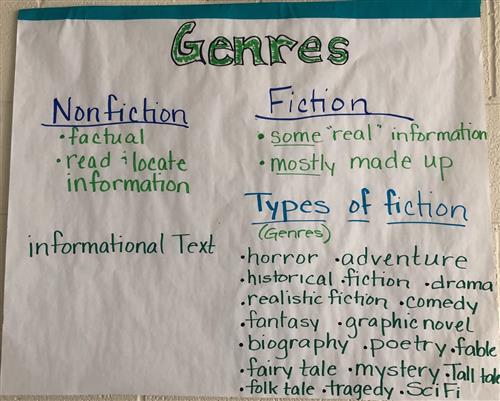 Genres
Nonfiction
• factual
• read & locate
information
informational Text
Fiction
• some "real" information
• mostly made up
Types of fiction
(Genres)
• horror • adventure
• historical • fiction • drama
• realistic fiction • comedy
• fantasy • graphic novel
• biography • poetry • fable
• fairy tale • mystery • Tall tale
• folk tale • tragedy • SciFi